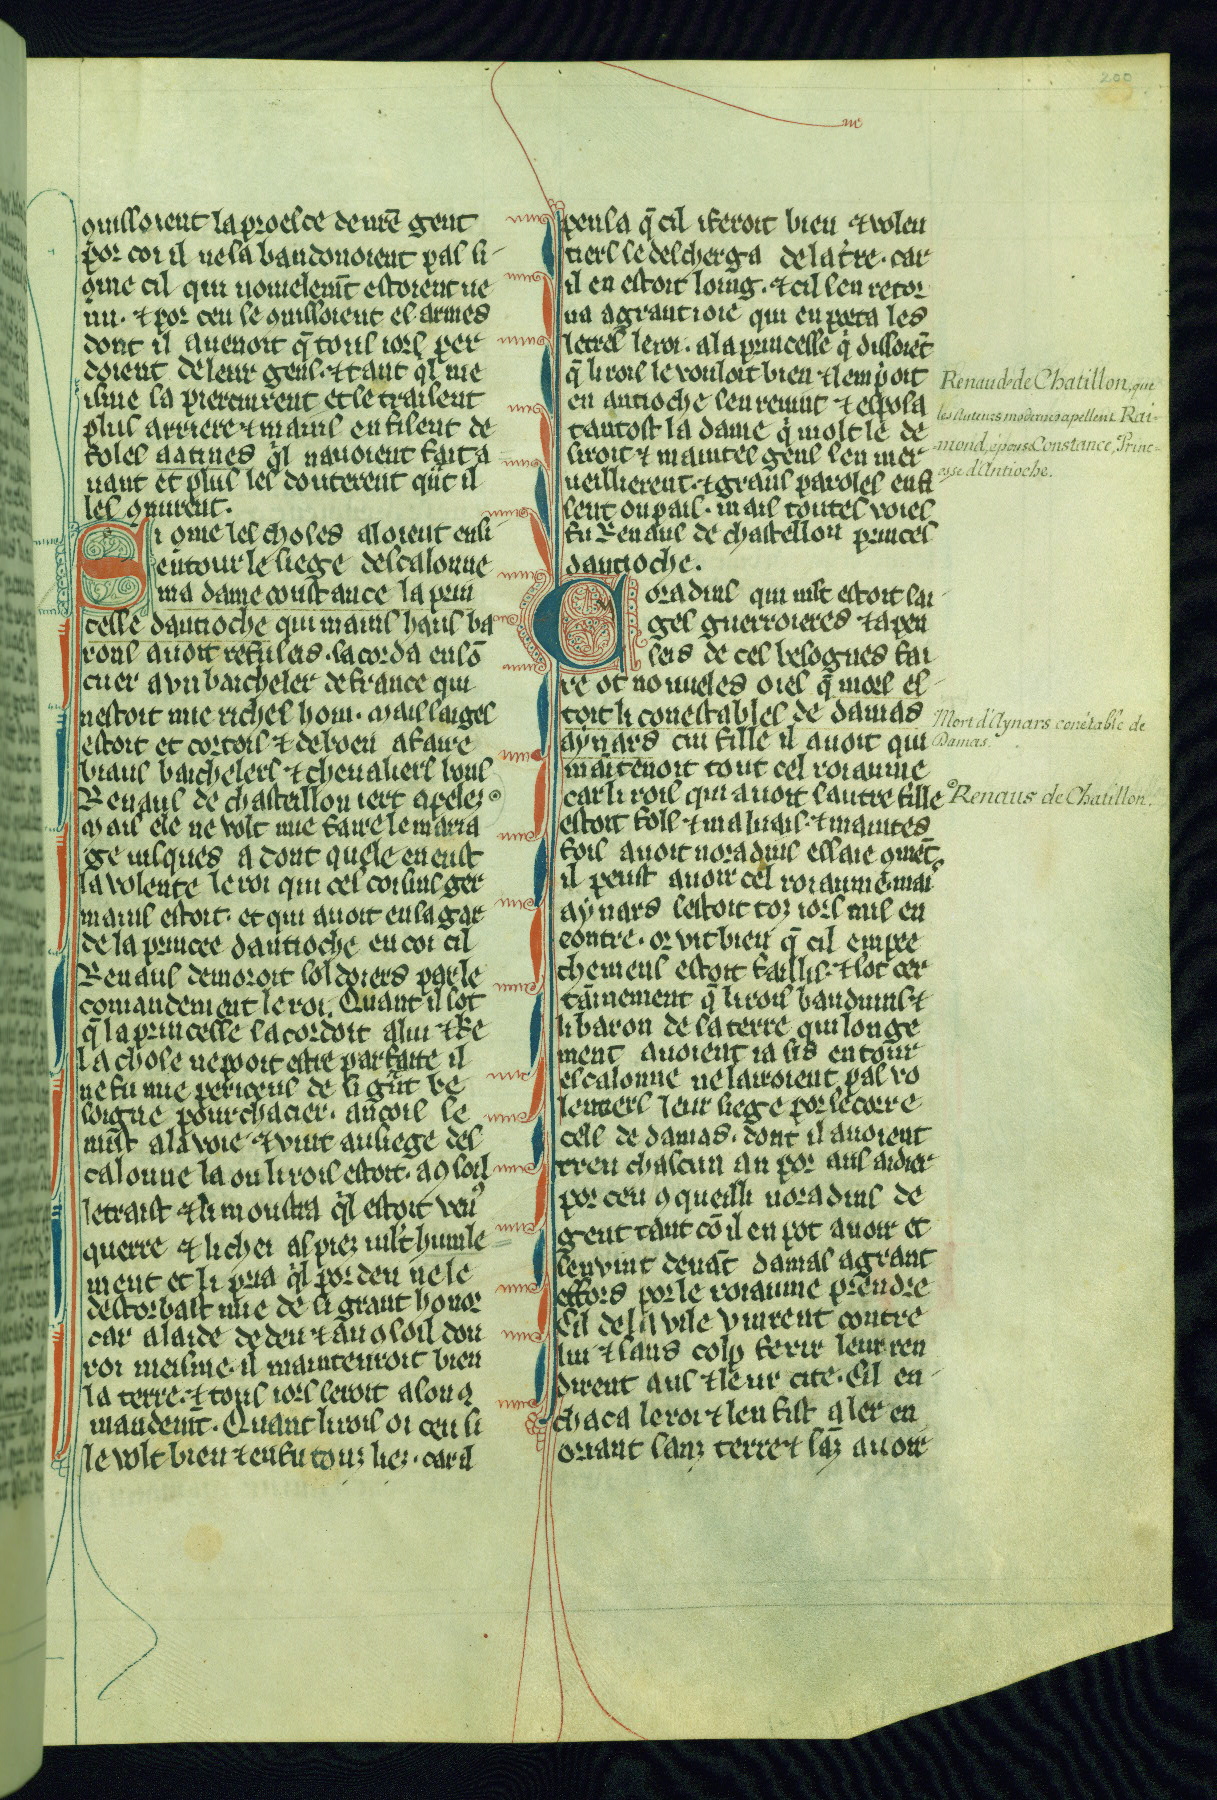 200
ɔnissoient la proesce de nr̃e gent
por coi il ne sa bandonoient pas si
ɔme cil qui novelem̃t estoient ve
nu. ⁊ por ceu se ɔnissoient el armes
dont il avenoit q̃ tous iors per
doient de leur gens. ⁊ tant ql me
isme sa percurent et se traisent
plus arriere ⁊ mains en fisent de
foles aatines ql n'avoient fait a
vant et plus les douterent qant il
les ɔnurent.
Si ɔme les choses aloient ensi
entour le siege descalonne
ma dame constance la prin
cesse dantioche qui mains haus ba
rons avoit refuseis. sacorda en sõ
cuer a un baicheler de france qui
nestoit mie riches hom. Mais larges
estoit et cortois ⁊ deboen afaire
biaus baichelers ⁊ chevaliers bons
Renaus de chasteillon iert apelez.
Mais ele ne volt mie faire le maria
ge iusques a dont quele en eust
la volente le roi qui ces cousins ger
mains estoit. et qui avoit en sa gar
de la princee dantioche en coi cil
Renaus demoroit soldoiers par le
comandement le roi. Quant il sot
q̃ la princesse sacordoit a lui ⁊ ke
la chose ne pooit estre parfaite il
ne fu mie periceus de si gñt be
soigne pourchacier. ancois se
mist a la voie ⁊ vint au siege des
calonne la ou li rois estoit. a ɔsoil
le traist ⁊ li moustra ql estoit venꝰ
querre ⁊ li chei as piez mlt humle
ment et li pria ql por deu ne le
destorbast mie de si grant honor
car a laide de deu ⁊ au ɔsoil dou
roi meisme. il maintenroit bien
la terre. ⁊ tous iors seroit a son ɔ
mandem̃t. Quant li rois oi ceu si
le volt bien ⁊ en fu touz liez. car il
pensa q̃ cil iferoit bien ⁊ volen
tiers se descherga de la tr̃e. car
il en estoit loing. ⁊ cil sen retor
na a grant ioie qui en porta les
letres le roi. a la princesse q̃ dissoiẽt
q̃ li rois le vouloit bien ⁊ lemp̃oit
en antioche sen revint ⁊ espousa
tantost la dame q̃ molt le de
siroit ⁊ maintes gens sen mer
veillierent. ⁊ grans paroles en fi
sent ou pais. mais toutes voies
fu Renaus de chastellon princes
dantioche.
Noradins qui mlt estoit sai
ges guerroieres ⁊ apen
seis de ces besognes fai
re ot noveles oies q̃ mors es
toit li conestables de damas
aynars cui fille il avoit qui
maintenoit tout cel roiaume
car li rois qui avoit sautre fille
estoit fols ⁊ malvais. ⁊ maintes
fois avoit noradins essaie ɔmẽt
il peust avoir cel roiaume. mai
aynars lestoit toz iors mis en
contre. or vit bien q̃ cil empee
chemens estoit faillis. ⁊ sot cer
tainement q̃ li rois bauduins ⁊
li baron de sa terre qui longe
ment avoient ia sis entour
escalonne ne lairoient pas vo
lentiers leur siege por secorre
cels de damas. dont il avoient
treu chascun an por aus aidier
por ceu ɔqueilli noradins de
gent tant cõ il en pot avoir et
sen vint devãt damas a grant
effors por le roiaume prendre
Cil de la vile vinrent contre
lui ⁊ sans colp ferir leur ren
dirent aus ⁊ leur cite. Cil en
chaca le roi ⁊ len fist aler en
oriant sanz terre ⁊ sãz avoir
Renaud de Chatillon, que
les Auteurs modernes apellent Rai-
mond, epous Constance, Princ-
esse d'Antioche.
Mort d'Aynars conétable de
Damas.
Renaus de Chatillon.